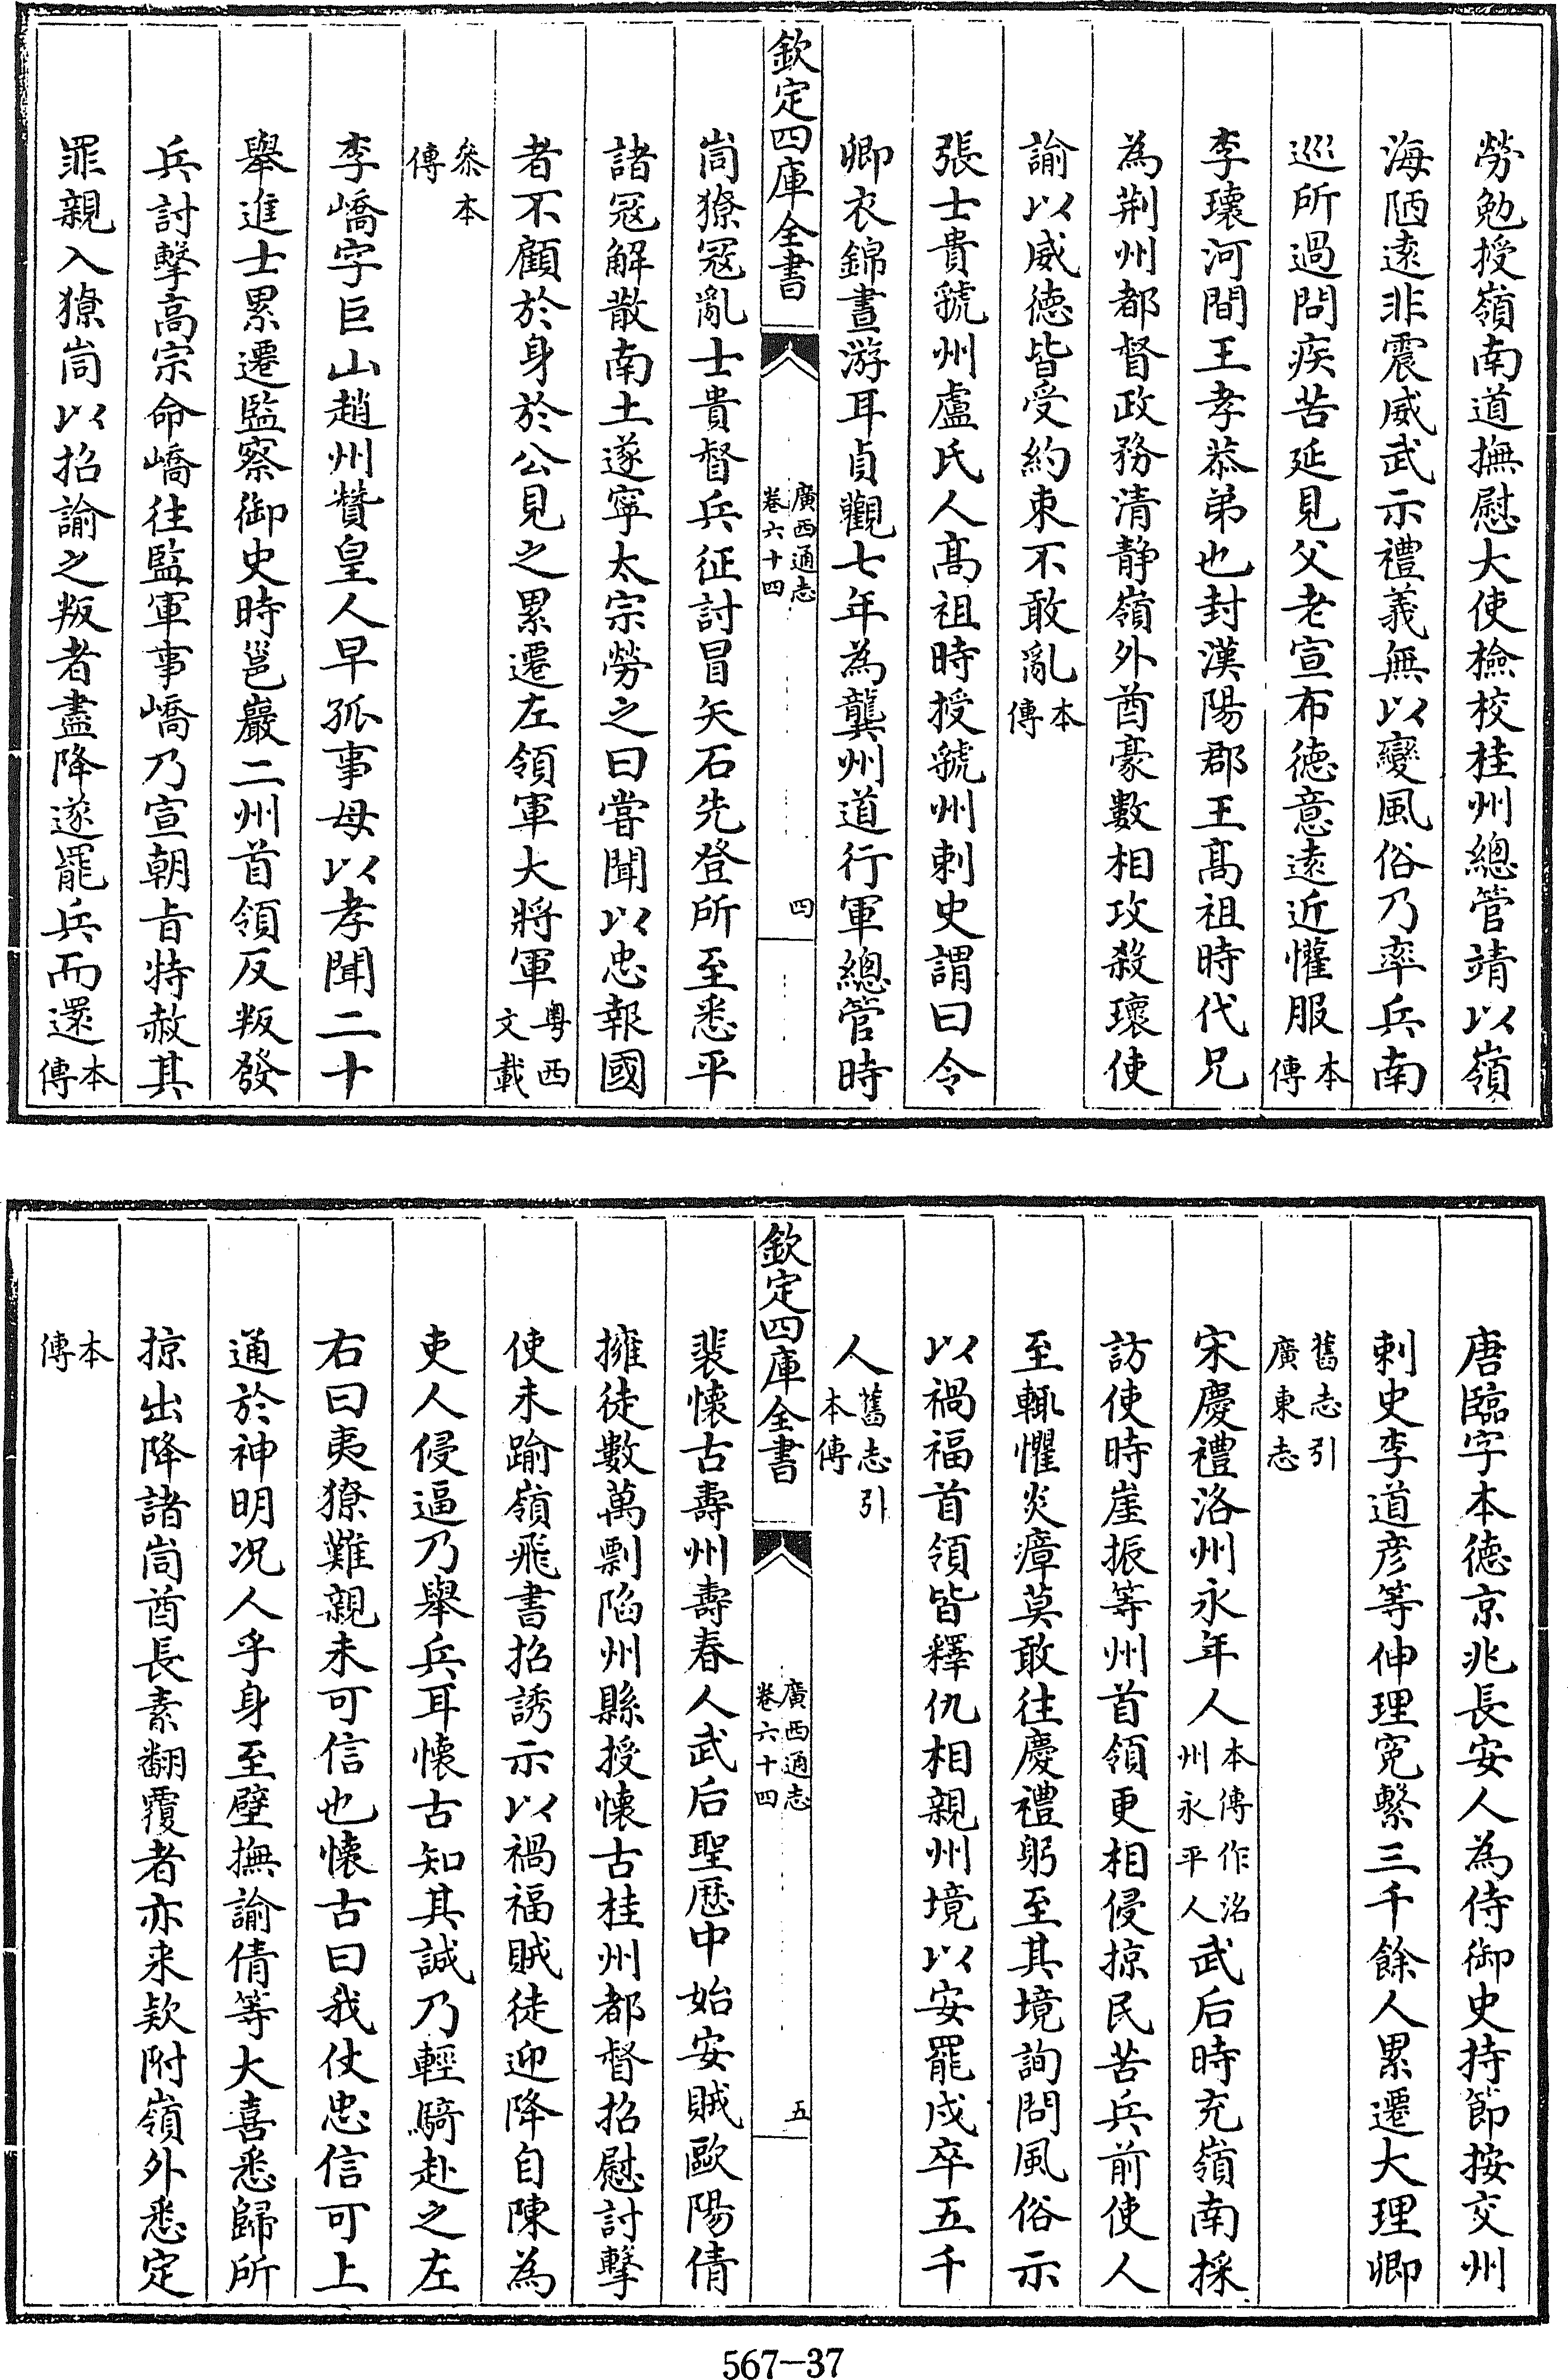 勞勉授嶺南道撫慰大使檢校桂州總管靖以嶺
海陋逺非震威武示禮義無以變風俗乃率兵南
巡所過問疾苦延見父老宣布徳意遠近懽服本傳
李瓌河間王孝恭弟也封漢陽郡王髙祖時代兄
為荆州都督政務清静嶺外酋豪數相攻殺瓌使
諭以威德皆受約束不敢亂本傳
張士貴虢州盧氏人髙祖時授虢州刺史謂曰令
卿衣錦晝游耳貞觀七年為龔州道行軍總管時
欽定四庫全書
廣西通志
卷六十四
四
峝獠冦亂士貴督兵征討冒矢石先登所至悉平
諸冦解散南土遂寧太宗勞之曰嘗聞以忠報國
者不顧於身於公見之累遷左領軍大將軍粤西文載
叅本傳
李嶠字巨山趙州贊皇人早孤事母以孝聞二十
舉進士累遷監察御史時邕巖二州首領反叛發
兵討擊高宗命嶠往監軍事嶠乃宣朝㫖特赦其
罪親入獠峝以招諭之叛者盡降遂罷兵而還本傳
唐臨字本徳京兆長安人為侍御史持節按交州
刺史李道彦等伸理寃繫三千餘人累遷大理卿
舊志引廣東志
宋慶禮洛州永年人本傳作洺州永平人武后時充嶺南採
訪使時崖振等州首領更相侵掠民苦兵前使人
至輒懼炎瘴莫敢往慶禮躬至其境詢問風俗示
以禍福首領皆釋仇相親州境以安罷戍卒五千
人舊志引本傳
欽定四庫全書
廣西通志
卷六十四
五
裴懐古壽州壽春人武后聖厯中始安賊歐陽倩
擁徒數萬剽陷州縣授懐古桂州都督招慰討擊
使未踰嶺飛書招誘示以禍福賊徒迎降自陳為
吏人侵逼乃舉兵耳懐古知其誠乃輕騎赴之左
右曰夷獠難親未可信也懐古曰我仗忠信可上
通於神明况人乎身至壁撫諭倩等大喜悉歸所
掠出降諸峝酋長素翻覆者亦来欵附嶺外悉定
本傳
567-37